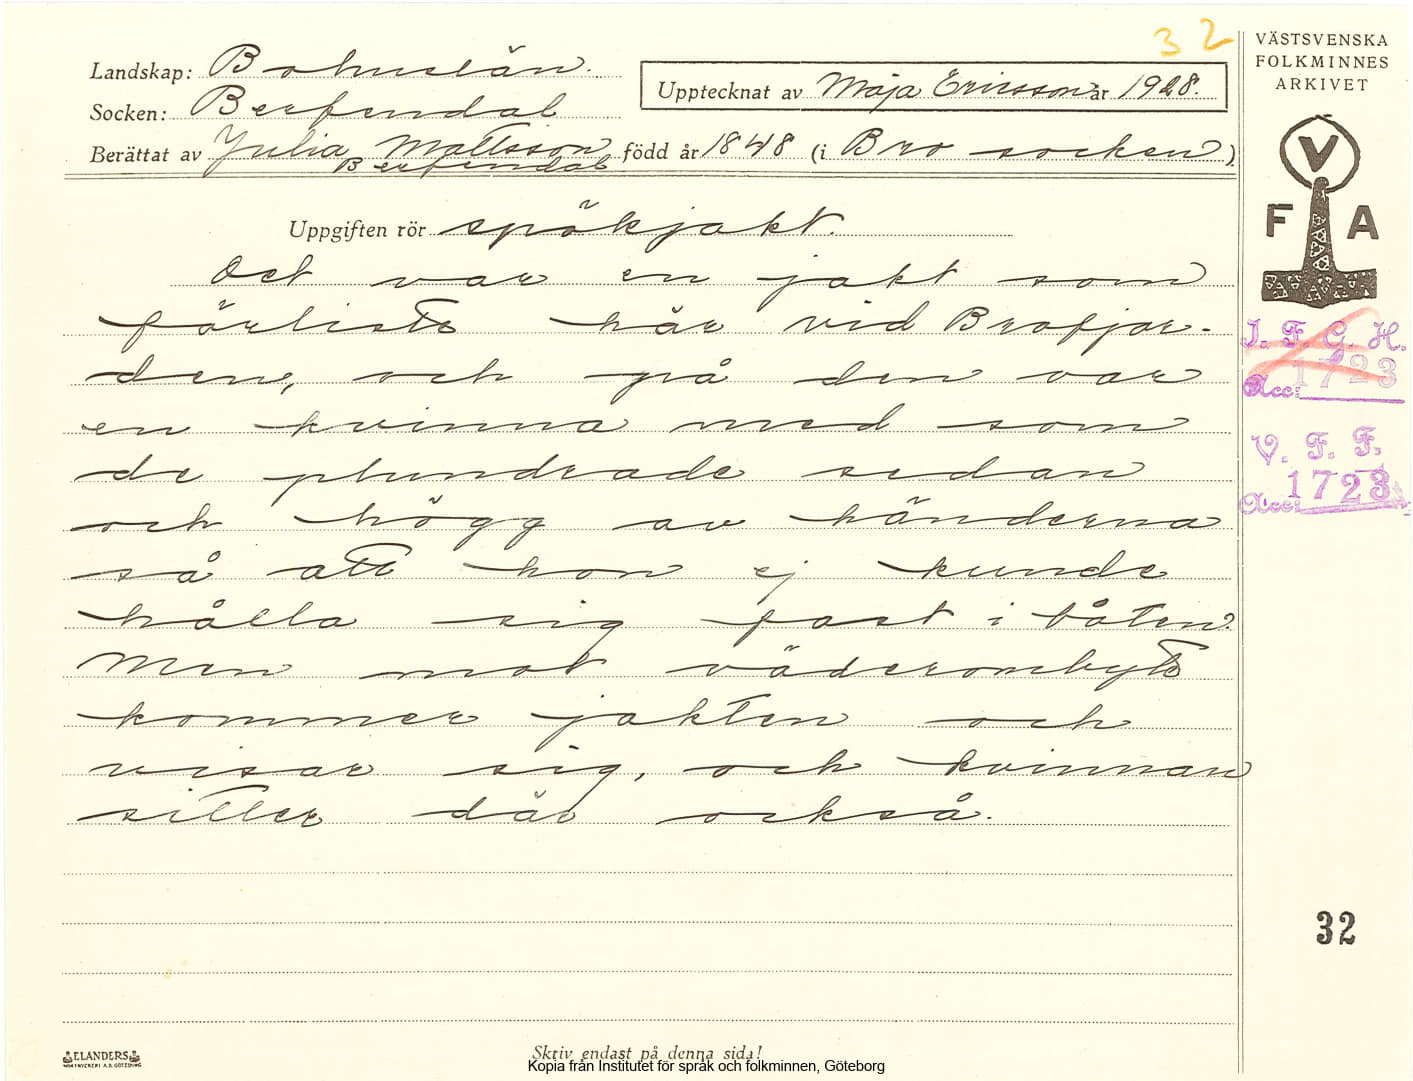 32
VÄSTSVENSKA
FOLKMINNES
ARKIVET
Landskap: Bohuslän.
Upptecknat av Maja Ericsson år 1928.
Socken: Berfendal
Berättat av Julia Mattsson född år 1848 (i Bro socken)
Berfendal
V
F A
Uppgiften rör spökjakt.
Det var en jakt som
förliste här vid Brofjor-
den, och på den var
en kvinna med som
de plundrade sedan
och högg av händerna
så att hon ej kunde
hålla sig fast i båten.
Men mot väderombyte
kommer jakten och
visar sig, och kvinnan
sitter där också.
I. F. G. H.
Acc: 1723
V. F. F.
Acc: 1723
32
ELANDERS
Skriv endast på denna sida!
Kopia från Institutet för språk och folkminnen, Göteborg